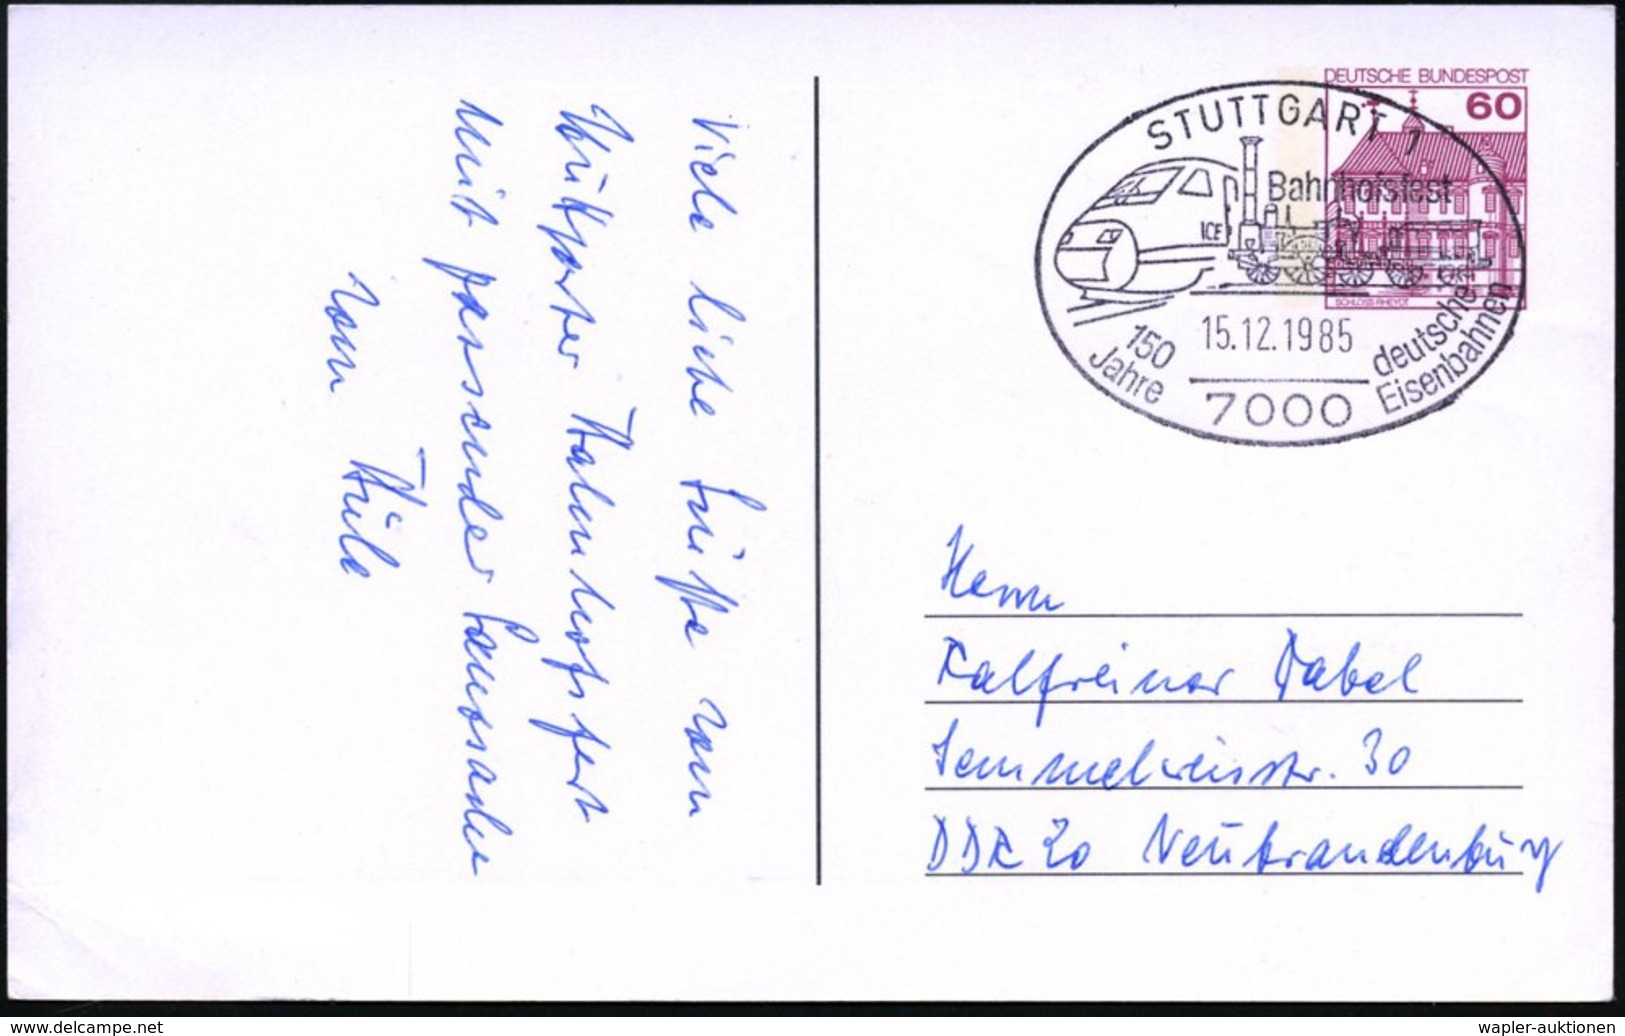 Viele liebe Grüße vom
Stuttgarter Bahnhofsfest
Mit passender Ganzsache
vom
DEUTSCHE BUNDESPOST
60
SCHLOSS RHEYDT
STUTTGART 1
Bahnhofsfest
ICE
15.12.1985
150 Jahre
deutsche Eisenbahnen
7000
Herrn
Ralfreiner Dabel
Semmelweisstr. 30
DDR 20 Neubrandenburg
www.delcampe.net
wapler-auktionen